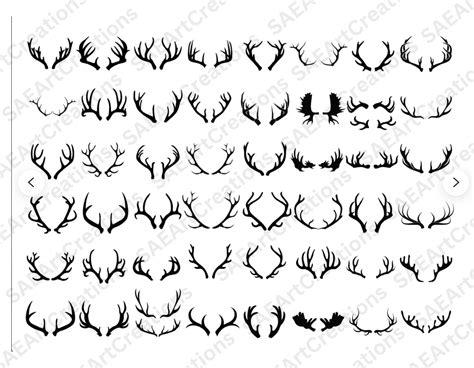 SAEArtCreations
SAEArtCreations
SAEArtCreations
SAEArtCreations
SAEArtCreations
SAEArtCreations